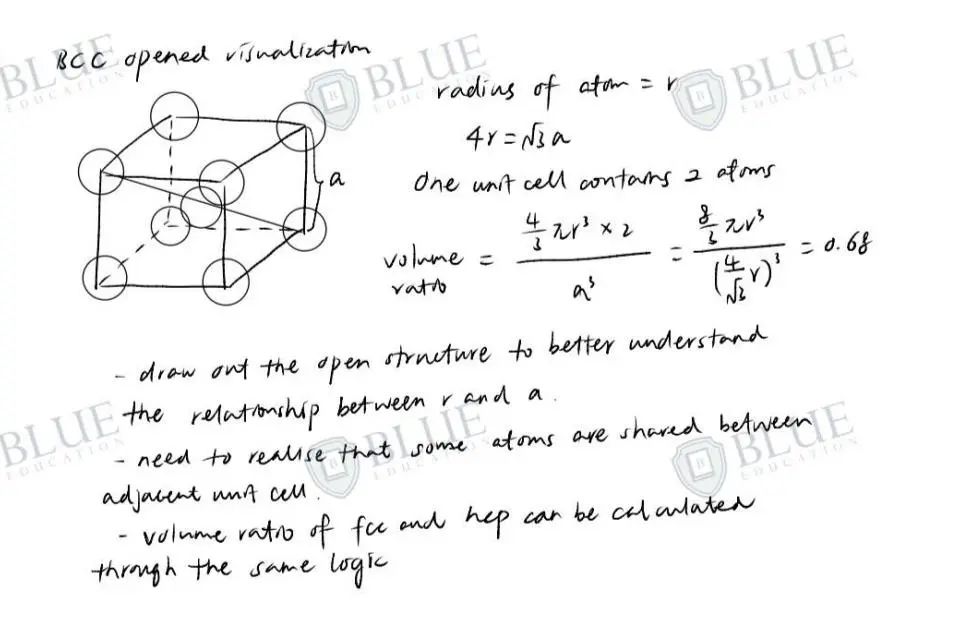 BCC opened visualization
radius of atom = r
4r = √3 a
a
One unit cell contains 2 atoms
volume ratio = (4/3 πr³ × 2) / a³ = (8/3 πr³) / (4/√3 r)³ = 0.68
- draw out the open structure to better understand
the relationship between r and a.
- need to realise that some atoms are shared between
adjacent unit cell.
- volume ratio of fcc and hcp can be calculated
through the same logic
BLUE
EDUCATION
BLUE
EDUCATION
BLUE
EDUCATION
BLUE
EDUCATION
BLUE
EDUCATION
BLUE
EDUCATION